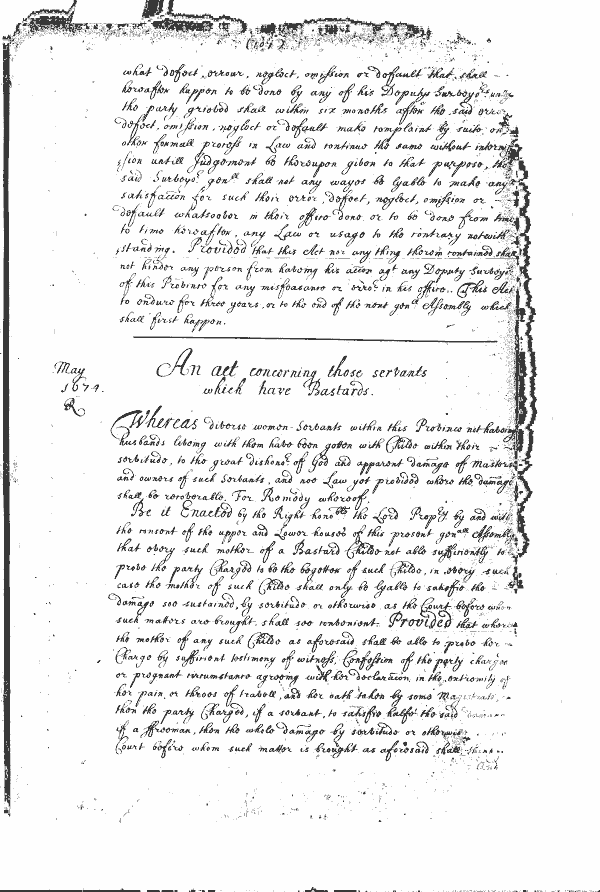 what defect, errour, neglect, omission or default that shall
hereafter happen to be done by any of his Deputy Survey:rs
the party grieved shall within six moneths after the said error
defect, omission, neglect or default make complaint by suite, or
other formall process in Law and continue the same without intermi
ssion untill Judgement be thereupon given to that purpose, the
said Surveyor gen:ll shall not any wayes be lyable to make any
satisfaccon for such their error, defect, neglect, omission or
default whatsoever in their office done, or to be done from time
to time hereafter, any Law or usage to the contrary notwith
standing. Provided that this Act nor any thing therein contained shall
not hinder any person from having his accon agt any Deputy Surveyor
of this Province for any misfeasance or error in his office. This Act
to endure for three years, or to the end of the next gen:ll Assembly which
shall first happen.
May
1674.
R
An act concerning those servants
which have Bastards.
Whereas diverse women-Servants within this Province not having
husbands liveing with them have been gotten with Childe within their
servitude, to the great dishono:r of God and apparent damage of Masters
and owners of such Servants, and noe Law yet provided where the damage
shall be recoverable. For Remedy whereof.
Be it Enacted by the Right hono:ble the Lord Prop:ry by and with
the consent of the upper and Lower houses of this present gen:all Assembly
that every such mother of a Bastard Childe not able sufficiently to
prove the party Charged to be the begetter of such Childe, in every such
case the mother of such Childe shall only be lyable to satisfie the
damage soe sustained, by servitude or otherwise, as the Court before whom
such matters are brought, shall see convenient. Provided that where
the mother of any such Childe as aforesaid shall be able to prove her
Charge by sufficient testimony of witness, Confession of the party charged
or pregnant circumstance agreeing with her declaracon, in the extremity of
her pain, or throes of travell, and her oath taken by some Magistrate,
then the party Charged, if a servant, to satisfie halfe the said damage
if a ffreeman, then the whole damage by servitude or otherwise
Court before whom such matter is brought as aforesaid shall think
And